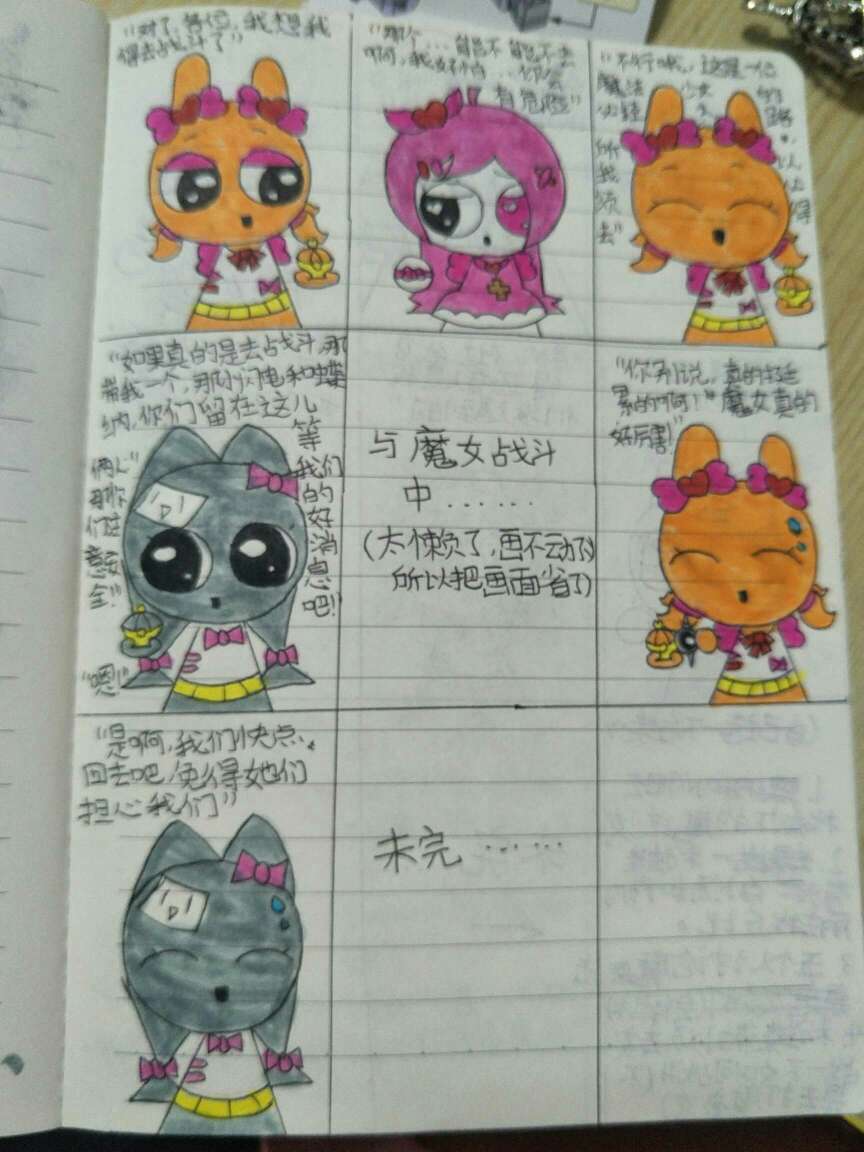 “对了，各位，我想我
得去战斗了”
“那个…能不能不去
啊，我好怕…你会
有危险”
“不行哦，这是一位
魔法少女的
必经之路，
所以
我必
须得
去”
“如果真的是去战斗，那
带我一个，那小闪电和蝶
纳，你们留在这儿
等我们
的好
消息
吧！
俩人”
那你
们注
意安
全！
“嗯！”
与魔女战斗
中……
（太懒了，画不动了
所以把画面省了）
“你别说，真的挺
累的啊！”魔女真的
好厉害！”
“是啊，我们快点
回去吧，免得她们
担心我们”
未完……